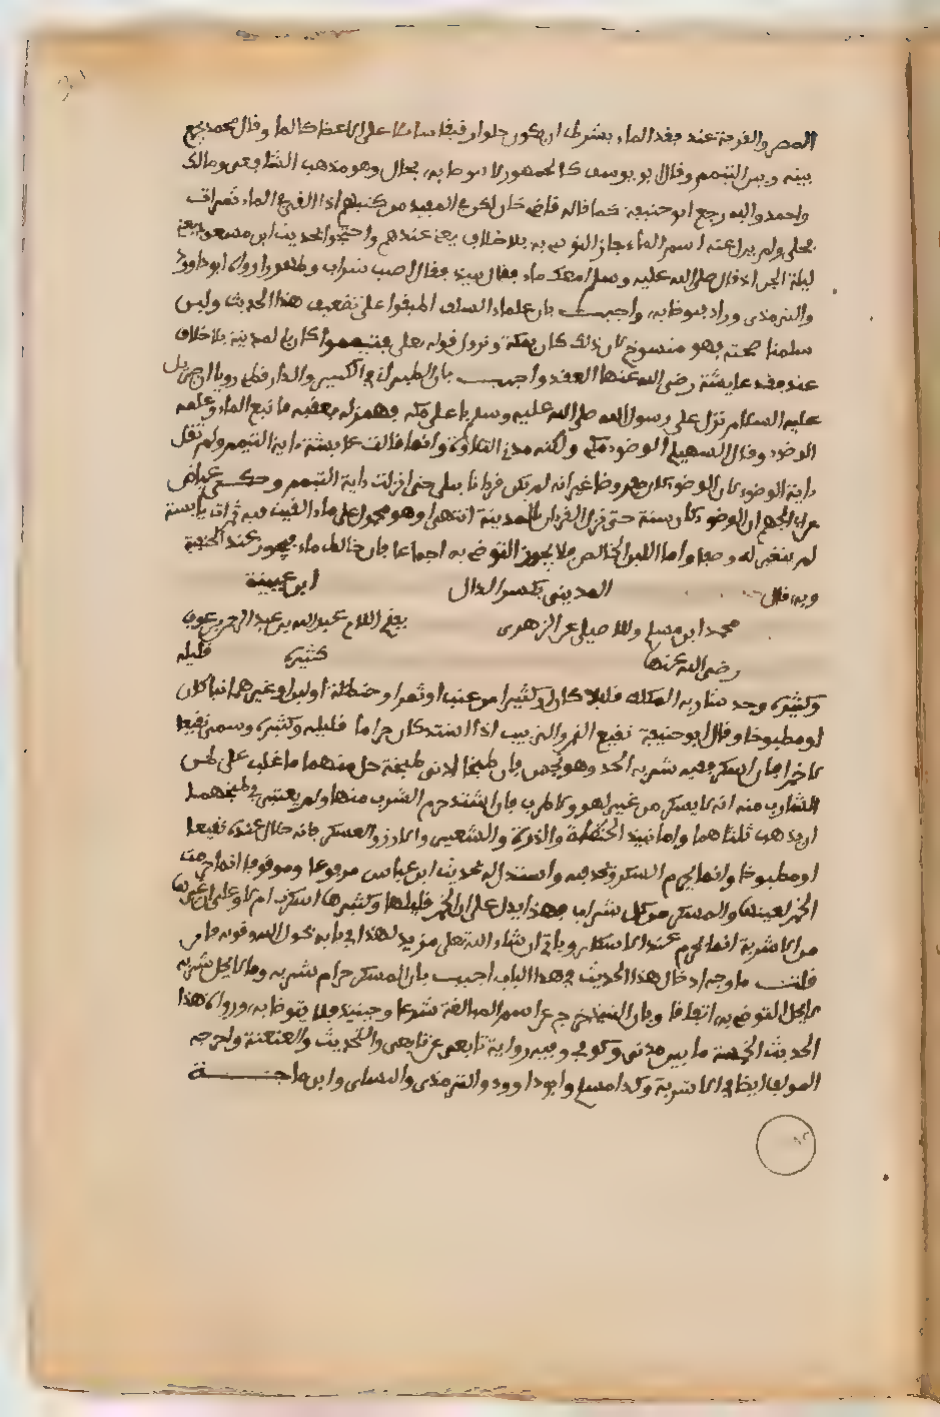 المصر والقرية عند فقد الماء بشرط ان يكون حلوا رقيقا سائلا على الاعضا كالما وقال محمد يجمع
بينه وبين التيمم وقال ابو يوسف كالجمهور لا يتوضا به بحال وهو مذهب الشافعي ومالك
واحمد واليه رجع ابو حنيفة كما قاله قاضي خان لكن في المفيد من كتبهم اذا القي في الماء تمرات
فحلى ولم يزل عنه اسم الماء جاز التوضي به بلا خلاف يعني عندهم واحتجوا بحديث ابن مسعود
ليلة الجن اذ قال صلى الله عليه وسلم امعك ماء فقال نبيذ فقال اصب شراب وطهور رواه ابو داوود
والترمذي وزاد فتوضا به واجيب بان علماء السلف اطبقوا على تضعيف هذا الحديث ولين
سلمنا صحته فهو منسوخ لان ذلك كان بمكة ونزول قوله تعلى فتيمموا كان بالمدينة بلا خلاف
عند فقد عايشة رضي الله عنها العقد واجيب بان الطبراني في الكبير والدارقطني رويا ان جبريل
عليه السلام نزل على رسول الله صلى الله عليه وسلم باعلى مكة فهمز له بعقبه فانبع الماء وعلمه
الوضوء وقال السهيلي الوضوء مكي ولكنه مدني التلاوة وانما قالت عايشة اية التيمم ولم تقل
اية الوضوء لان الوضوء كان مفروضا غير انه لم يكن قرءانا يتلى حتى انزلت اية التيمم وحكى عياض
عن ابي الجهم ان الوضوء كان سنة حتى نزل القرءان بالمدينة انتهى او هو محمول على ماء القيت فيه تمرات يابسة
لم تغير له وصفا واما اللبن الخالص فلا يجوز التوضي به اجماعا فان خالط ماء فيجوز عند الحنفية
وبه قال المديني بكسر الدال ابن عيينة
محمد ابن مسلم وللاصيلي عن الزهري بفتح اللام عبد الله بن عبد الرحمن بن عوف
رضي الله عنها كثيره قليله
وكثيره وحد شاربه المكلف قليلا كان او كثيرا من عنب او تمر او حنطة او لبن او غيرها نيا كان
او مطبوخا وقال ابو حنيفة نقيع التمر والزبيب اذا اشتد كان حراما قليله وكثيره وسمي نقيعا
لا خمرا فان اسكر ففيه شربه الحد وهو نجس فان طبخا ادنى طبخة حل منهما ما غلب على ظن
الشارب منه انه لا يسكر من غير لهو ولا طرب فان اشتد حرم الشرب منهما ولم يعتبر في طبخهما
ان يذهب ثلثاهما واما نبيذ الحنطة والذرة والشعير والارز والعسل فانه حلال عنده نقيعا
او مطبوخا وانما يحرم المسكر ويحد فيه واستدل له بحديث ابن عباس مرفوعا وموقوفا انما حرمت
الخمر لعينها والمسكر من كل شراب فهذا يدل على ان الخمر قليلها وكثيرها اسكرت ام لا وعلى ان غيرها
من الاشربة انما يحرم عند الاسكار وياتي ان شاء الله تعلى مزيد لهذا في بابه بحول الله وقوته فان
قلت ما وجه ادخال هذا الحديث في هذا الباب اجيب بان المسكر حرام شربه وما لا يحل شربه
لا يحل التوضي به اتفاقا وبان النبيذ خرج عن اسم الماء لغة شرعا وحينيذ فلا يتوضا به ورواة هذا
الحديث الخمسة ما بين مدني وكوفي وفيه رواية تابعي عن تابعي والتحديث والعنعنة واخرجه
المولف ايضا في الاشربة وكذا مسلم وابو داوود والترمذي والنساي وابن ماجة